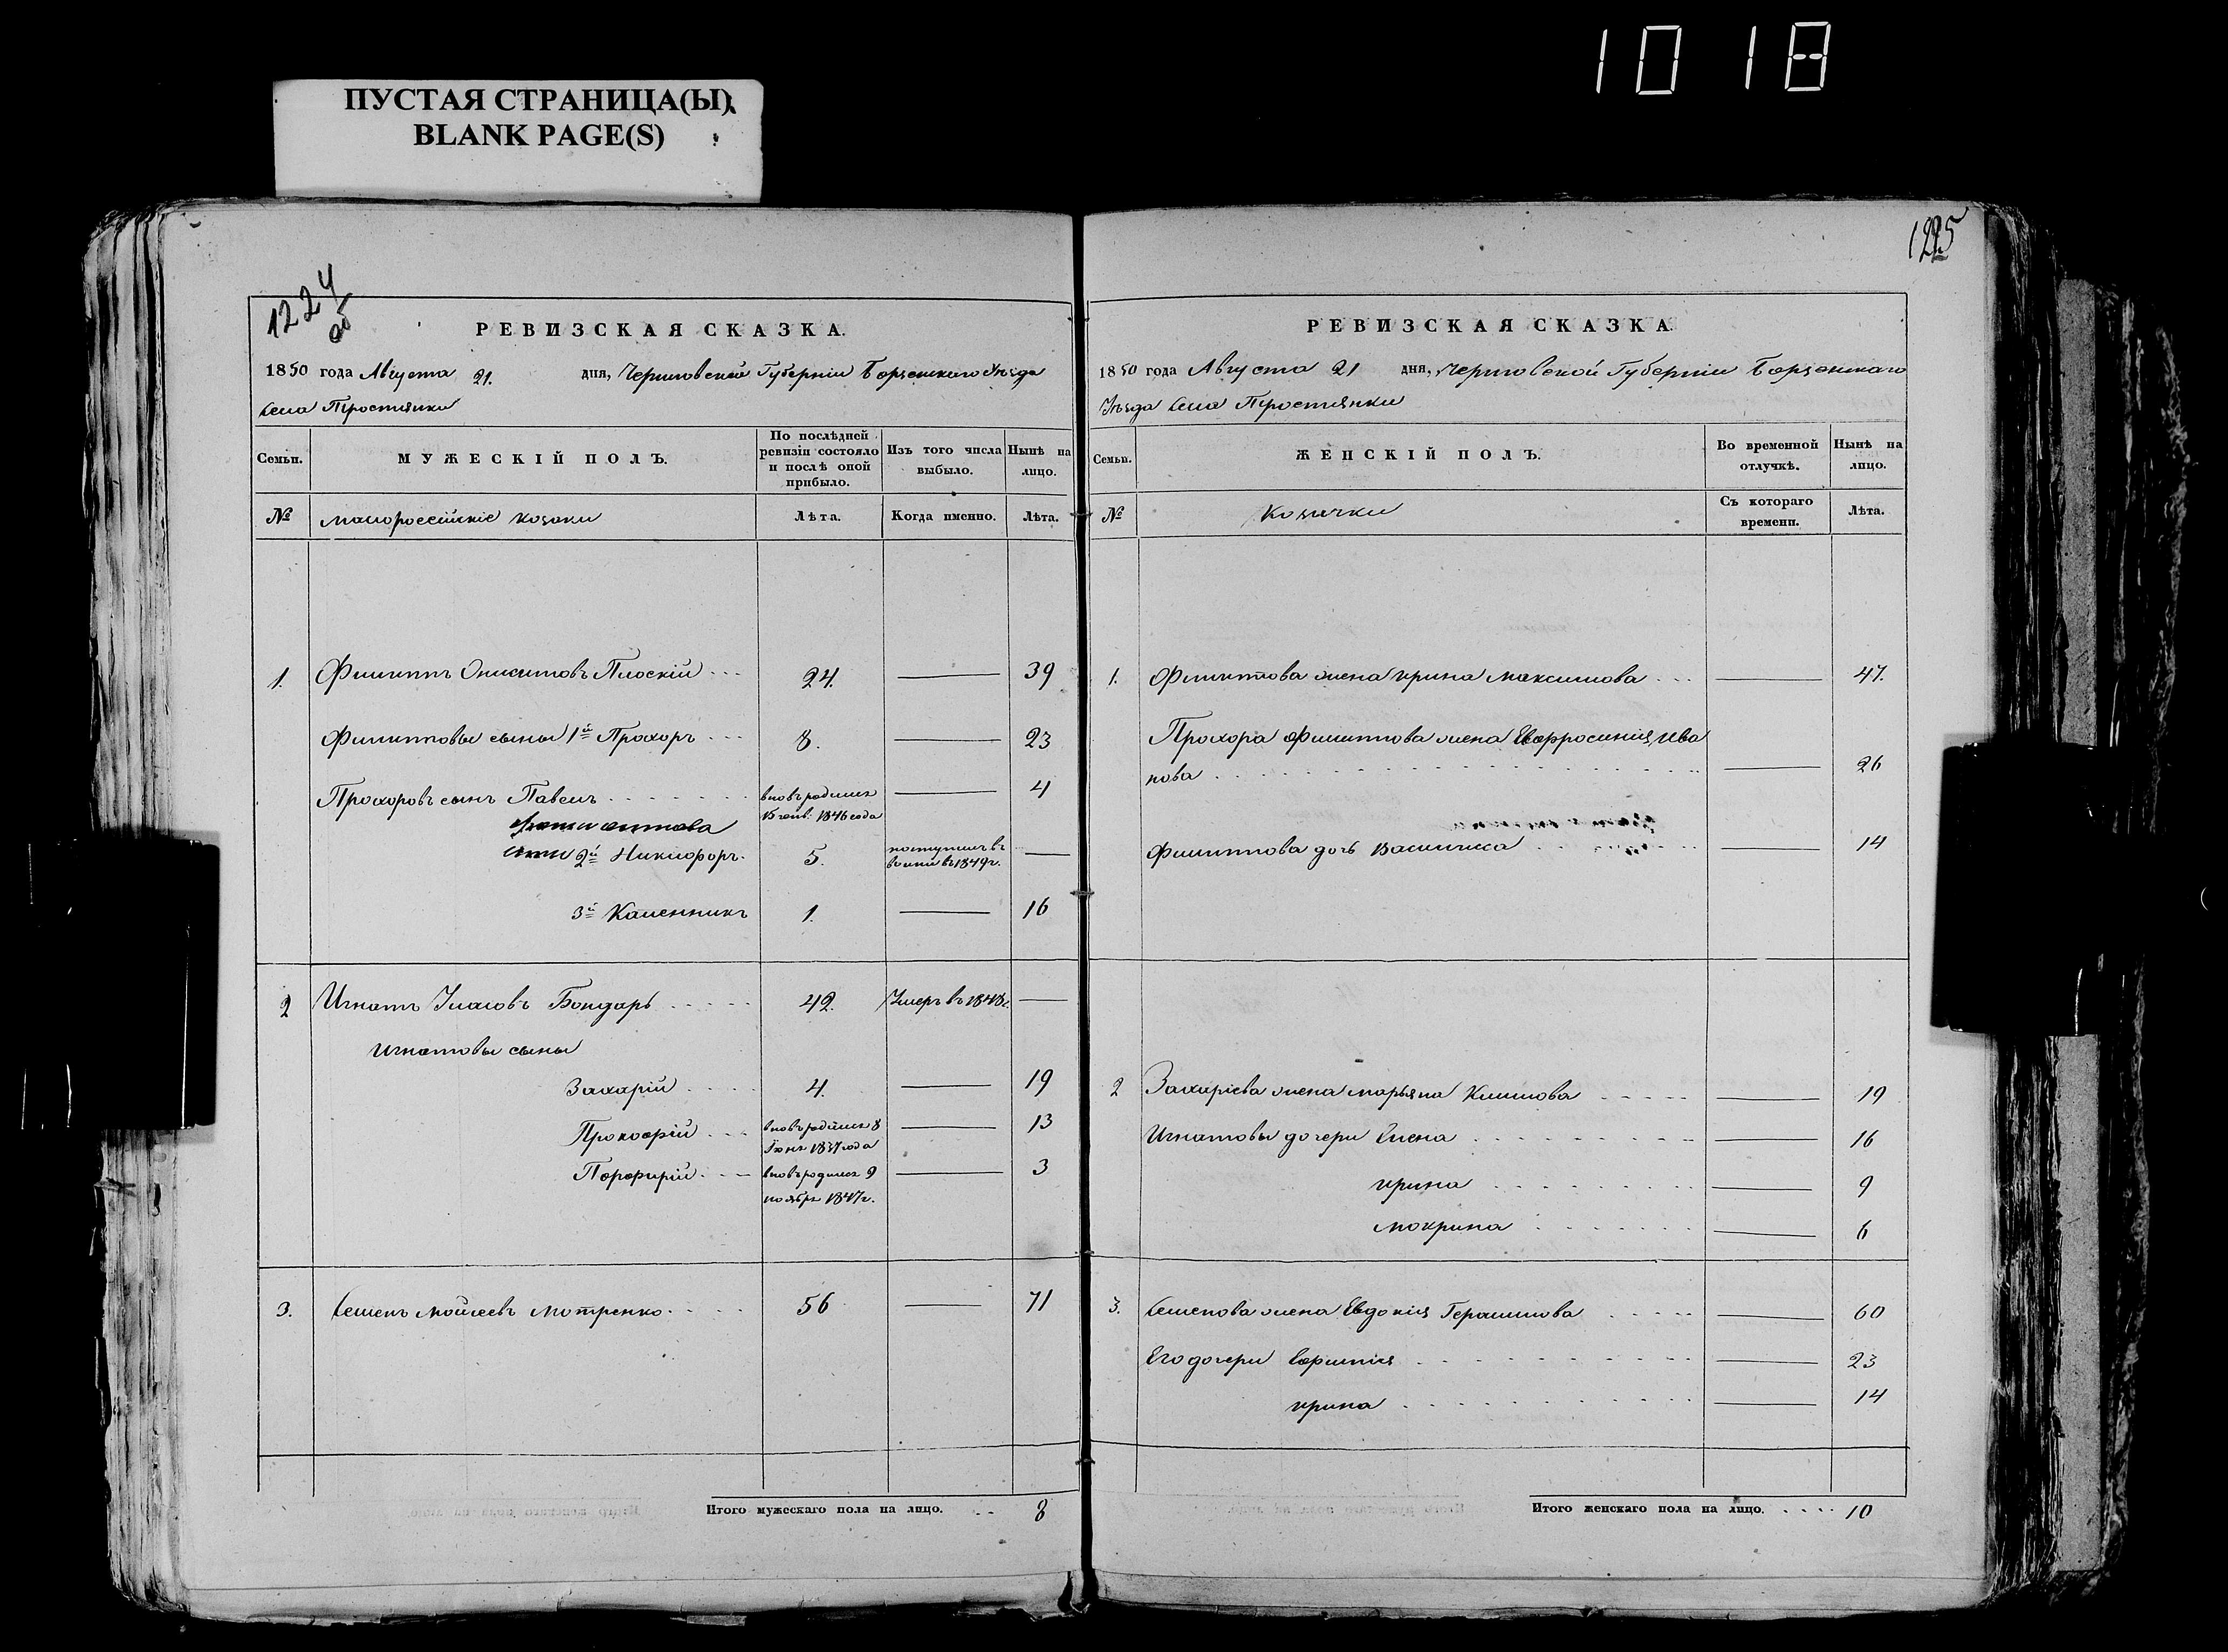 1018
ПУСТАЯ СТРАНИЦА(Ы)
BLANK PAGE(S)
1224
об
РЕВИЗСКАЯ СКАЗКА.
1850 года Августа 21. дня, Черниговской Губерніи Борзенскаго Уѣзда
Села Простянки
Семьи. МУЖЕСКІЙ ПОЛЪ. По послѣдней ревизіи состояло и послѣ оной прибыло. Изъ того числа выбыло. Нынѣ на лицо.
№ малороссійскіе козаки Лѣта. Когда именно. Лѣта.
1. Филиппъ Онисимовъ Плоскій 24. 39
Филипповы сыны 1й Прохоръ 8. 23
Прохоровъ сынъ Павелъ вновь родился 4
15 генв. 1846 года
Филиппова
сыны 2й Никифоръ. 5. поступилъ въ
воины въ 1849 г.
3й Каленникъ 1. 16
2 Игнатъ Бондарь 42. Умеръ въ 1848 г.
Игнатовы сыны
Захарій 4. 19
Прокофій вновь родился 8 13
Іюня 1837 года
Порфирій вновь родился 9 3
ноября 1847 г.
3. Семенъ Мойсеевъ Мотренко 56 71
Итого мужескаго пола на лицо. 8
1225
РЕВИЗСКАЯ СКАЗКА.
1850 года Августа 21 дня, Черниговской Губерніи Борзенскаго
Уѣзда Села Простянки
Семьи. ЖЕНСКІЙ ПОЛЪ. Во временной отлучкѣ. Нынѣ на лицо.
№ Козачки Съ котораго времени. Лѣта.
1. Филиппова жена Ирина Максимова 47.
Прохора Филиппова жена Евфросинія Ива
нова 26
Филиппова дочь Василиса 14
2 Захаріева жена Марьяна Климова 19
Игнатовы дочери Елена 16
Ирина 9
Мокрина 6
3. Семенова жена Евдокія Герасимова 60
Его дочери Евфимія 23
Ирина 14
Итого женскаго пола на лицо. 10